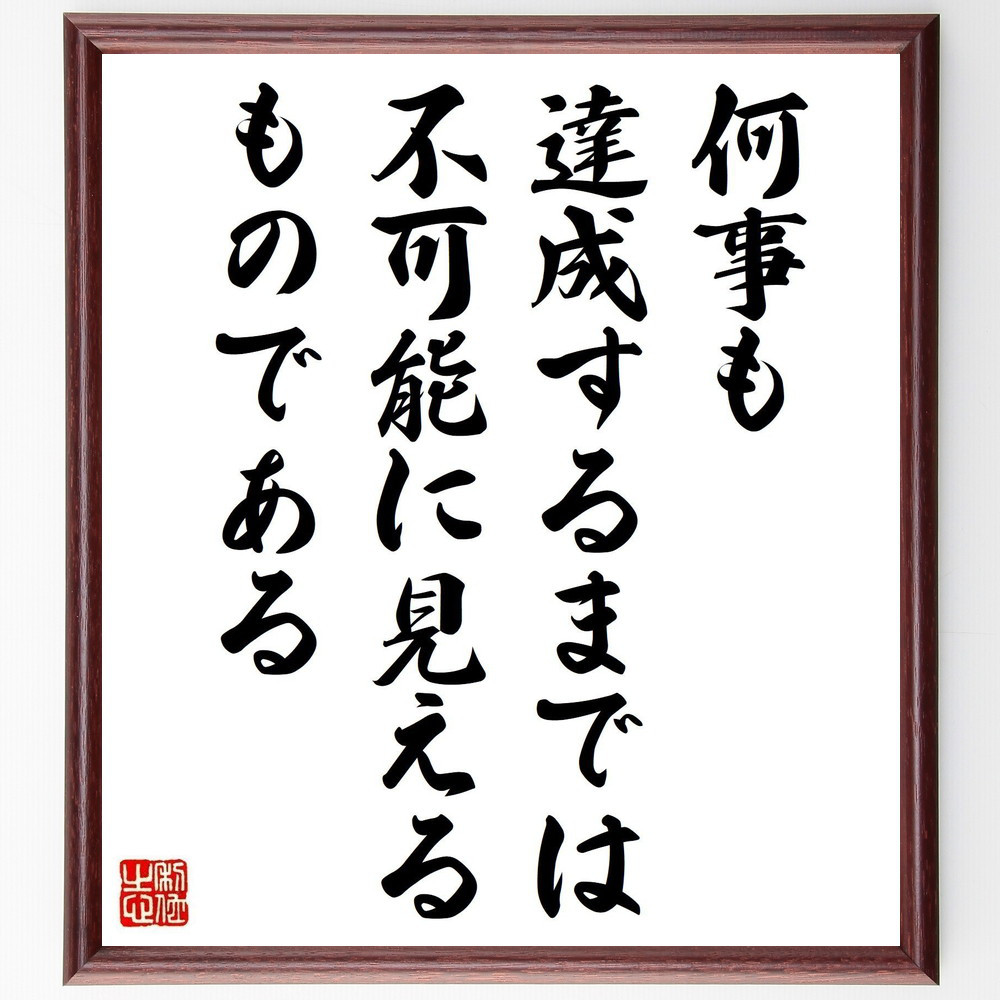 何事も
達成するまでは
不可能に見える
ものである